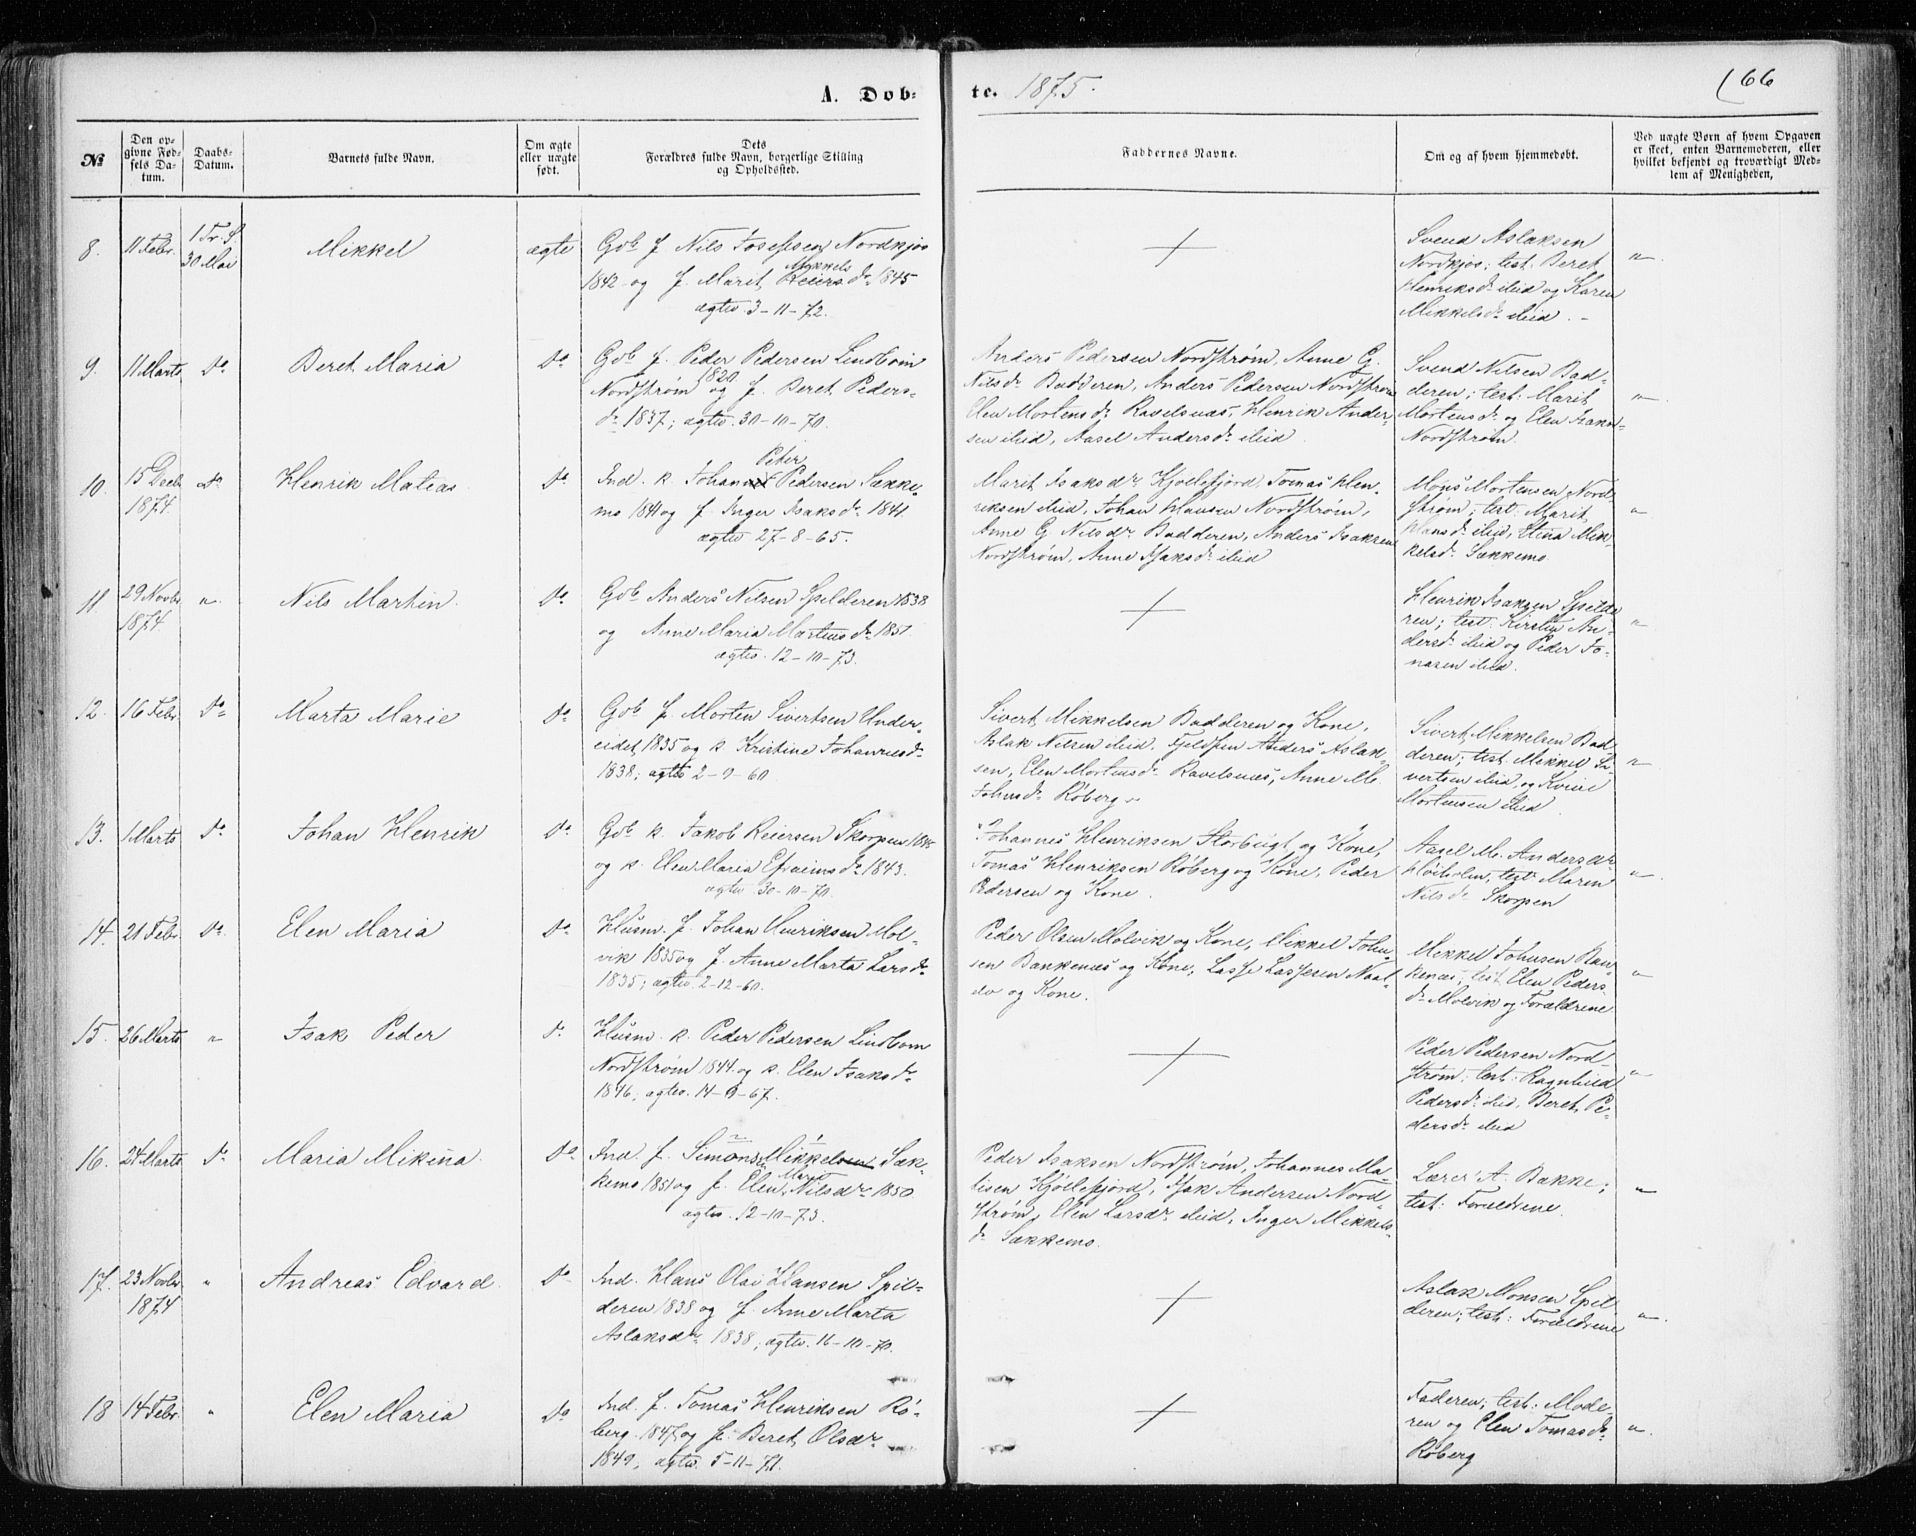 A. Døb-
te. 1875.
166
№
Den op-
givne Fød-
sels Da-
tum.
Daabs-
Datum.
Barnets fulde Navn.
Om ægte
eller uægte
født.
Dets
Forældres fulde Navn, borgerlige Stilling
og Opholdssted.
Faddernes Navne.
Om og af hvem hjemmedøbt.
Ved uægte Børn af hvem Opgaven
er skeet, enten Barnemoderen, eller
hvilket bekjendt og troværdigt Med-
lem af Menigheden,
8. 11 Febr. 1 Tr. S.
30 Mai
Mikkel
ægte
Gdb f Nils Josefsen Nordkjos
Mikkels
1842 og f. Marit Reiers dr 1845
ægtev. 3-11-72.
Svend Aslaksen
Nordkjos; test: Beret
Henriksdr ibid og Karen
Mikkelsdr ibid. -
"
9. 11 Marts do
Beret Maria
do
Gdb f. Peder Pedersen Lindbom
1820
Nordstrøm og f. Beret Peders-
dr 1837; ægtev. 30-10-70.
Anders Pedersen Nordstrøm, Anne G.
Nilsdr Badderen, Anders Pedersen Nordstrøm
Elen Mortensdr Ravelsnæs, Henrik Ander-
sen ibid, Aasel Andersdr ibid.
Svend Nilsen Bad-
deren; test: Marit
Mortensdr og Elen Isaksdr
Nordstrøm.
"
10. 15 Decb.
1874
do
Henrik Mateas
do
Peter
Ind. k. Johannes Pedersen Sække-
mo 1841 og f Inger Isaksdr 1841
ægtev 27-8-65.
Marit Isaksdr Kjøllefjord, Tomas Hen-
riksen ibid, Johan Hansen Nordstrøm,
Anne G Nilsdr Badderen, Anders Isaksen
Nordstrøm, Anne Isaksdr ibid
Mons Mortensen Nord-
strøm; test: Marit
Hansdr ibid, Elina Mik-
kelsdr Sækkemo
"
11 29 Novbr.
1874.
"
Nils Martin
do
Gdb Anders Nilsen Spilderen 1838
og Anne Maria Martinsdr 1851.
ægtev. 12-10-73.
Henrik Isaksen Spilde-
ren; test: Kirstin An-
dersdr ibid og Peder Jo-
nasen ibid.
"
12. 16 Febr. do
Marta Marie
do
Gdb f. Morten Sivertsen Under-
eidet 1835 og k Kristine Johannesdr
1838; ægtev 2-9-60
Sivert Mikkelsen Badderen og Kone,
Aslak Nilsen ibid. Fjeldfin Anders Aslak-
sen, Elen Mortensdr Ravelsnæs, Anne M.
Johnsdr Røberg.
Sivert Mikkelsen Bad-
deren; test. Mikkel Si-
vertsen ibid, og
Mortensen ibid
"
13. 1 Marts do
Johan Henrik
do
Gdb k. Jakob Reiersen Skorpen 1845
og k. Elen Maria Efraimsdr 1843.
ægtev 30-10-70.
Johannes Henriksen Storbugt og Kone,
Tomas Henriksen Røberg og Kone, Peder
Pedersen og Kone.
Aasel M. Andersdr
test: Maren
Nilsdr Skorpen
"
14. 21 Febr. do
Elen Maria
do
Husm. f. Johan Henriksen Mol-
vik 1835 og f. Anne Marta Larsdr
1835; ægtev. 2-12-60.
Peder Olsen Molvik og Kone, Mikkel John-
sen Bankenæs og Kone, Lasse Lassesen
og Kone.
Mikkel Johnsen Ban-
kenæs; test Elen Peders-
dr Molvik og Forældrene
"
15. 26 Marts "
Isak Peder
do
Husm. k. Peder Pedersen Lindbom
Nordstrøm 1844 og k. Elen Isaksdr
1846; ægtev. 14-9-67.
Peder Pedersen Nord-
strøm; test: Ragnhild
Pedersdr ibid, Beret Pe-
dersdr ibid
"
16. 24 Marts do
Maria Mikina
do
Ind. f. Simon Mikkelsen Sæk-
Marit
kemo 1851 og f. Elen Nilsdr 1850
ægtev. 12-10-73.
Peder Isaksen Nordstrøm, Johannes Ma-
tisen Kjøllefjord, Isak Andersen Nord-
strøm, Elen Larsdr ibid, Inger Mikkels-
dr Sækkemo.
Lærer A. Bakke;
test: Forældrene.
"
17. 23 Novbr.
1874
"
Andreas Edvard
do
Ind. Hans Olai Hansen Spil-
deren 1838 og f. Anne Marta
Aslaksdr 1838; ægtev. 16-10-70.
Aslak Monsen Spil-
deren; test: Forældrene
"
18 14 Febr. "
Elen Maria
do
Ind. f. Tomas Henriksen Rø-
berg. 1847 og f. Beret Olsdr
1849, ægtev. 5-11-71.
Faderen; test: Mode-
ren og Elen Tomasdr
Røberg
"